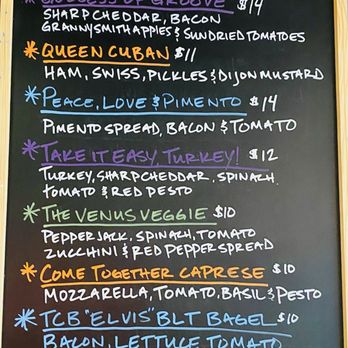 OF GROOVE $14
SHARP CHEDDAR, BACON
GRANNYSMITH APPLES & SUNDRIED TOMATOES
*QUEEN CUBAN $11
HAM, SWISS, PICKLES & DIJON MUSTARD
*PEACE, LOVE & PIMENTO $14
PIMENTO SPREAD, BACON & TOMATO
*TAKE IT EASY, TURKEY! $12
TURKEY, SHARP CHEDDAR, SPINACH
TOMATO & RED PESTO
*THE VENUS VEGGIE $10
PEPPERJACK, SPINACH, TOMATO
ZUCCHINI & RED PEPPER SPREAD
*COME TOGETHER CAPRESE $10
MOZZARELLA, TOMATO, BASIL & PESTO
*TCB "ELVIS" BLT BAGEL $10
BACON, LETTUCE TOMATO